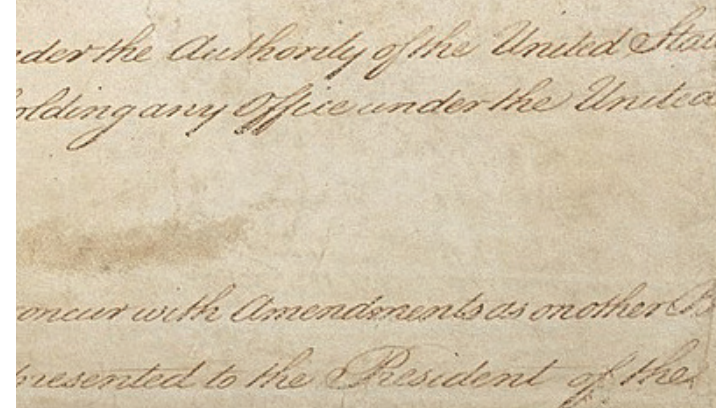 nder the Authority of the United Stat
olding any Office under the United
oncur with Amendments as on other B
presented to the President of the